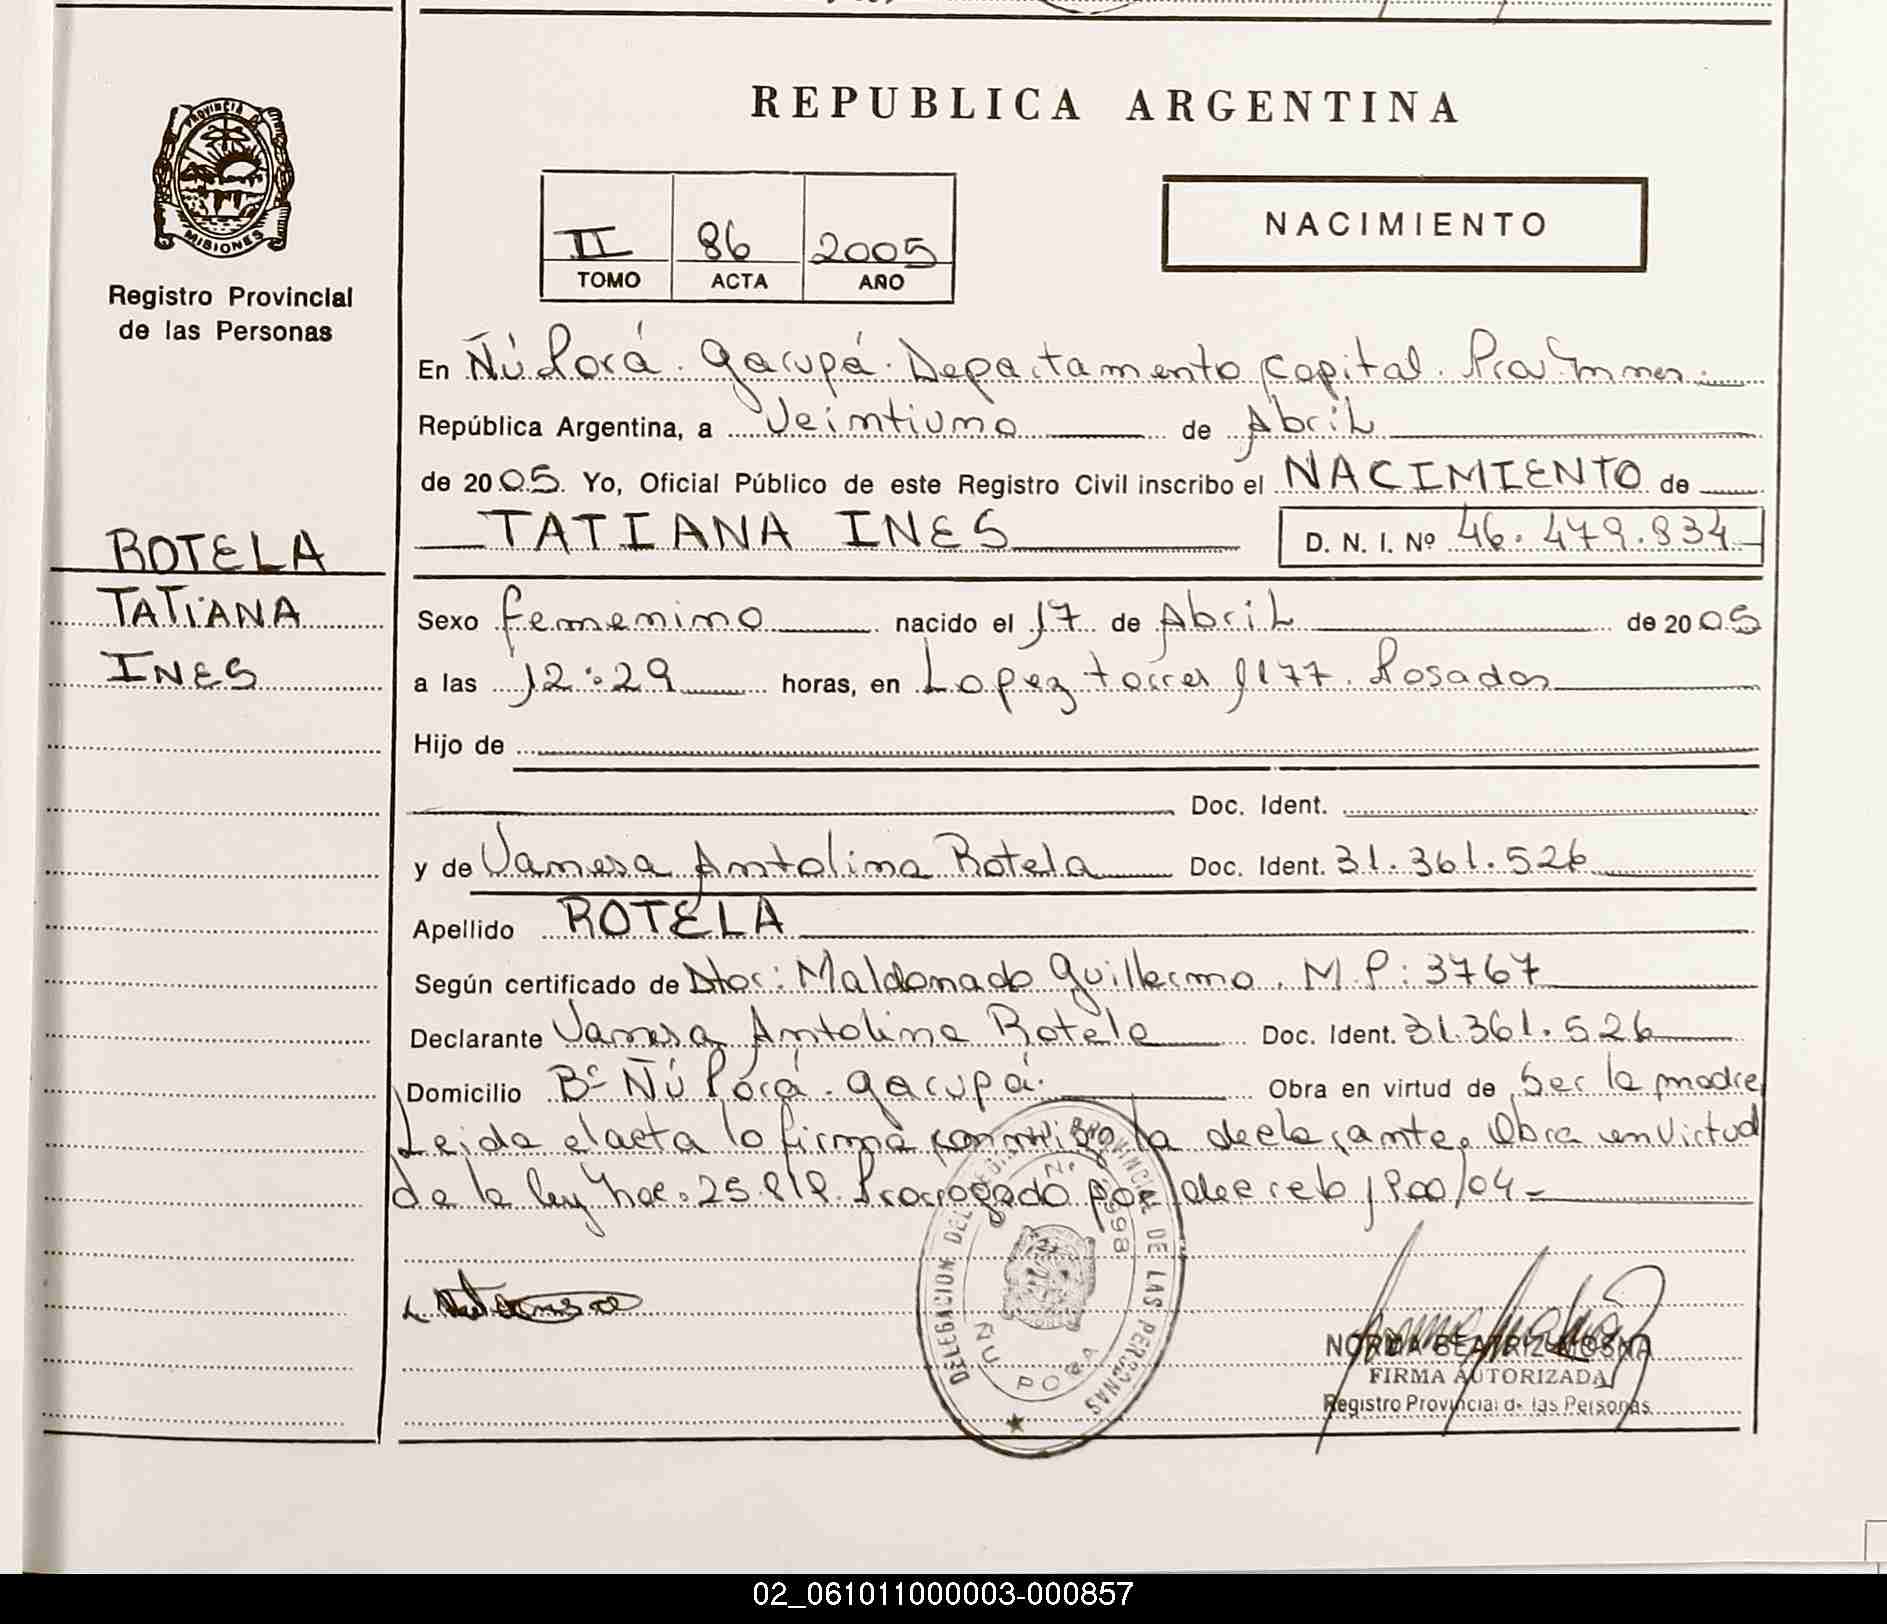 REPUBLICA ARGENTINA
PROVINCIA DE
MISIONES
Registro Provincial
de las Personas
II 86 2005
TOMO ACTA AÑO
NACIMIENTO
En Ñú Porá. Garupá. Departamento Capital.
República Argentina, a Veintiuno de Abril
de 2005. Yo, Oficial Público de este Registro Civil inscribo el NACIMIENTO de
TATIANA INES D. N. I. Nº 46.479.834
ROTELA
TATIANA
INES
Sexo femenino nacido el 17 de Abril de 2005
a las 12:29 horas, en Lopez torres 1177. Posadas
Hijo de
Doc. Ident.
y de Vanesa Antolina Rotela Doc. Ident. 31.361.526
Apellido ROTELA
Según certificado de Dtor: Maldonado Guillermo. M.P: 3767
Declarante Vanesa Antolina Rotela Doc. Ident. 31.361.526
Domicilio Bº Ñú Porá. Garupá. Obra en virtud de Ser la madre
Leida el acta la firma conmigo la declarante. Obra en virtud
de la ley nac. 25.819. Prorrogado por decreto 1900/04
DELEGACION DEL REGISTRO PROVINCIAL DE LAS PERSONAS
ÑU PORA
NORMA BEATRIZ MOSNA
FIRMA AUTORIZADA
Registro Provincial de las Personas
02_061011000003-000857